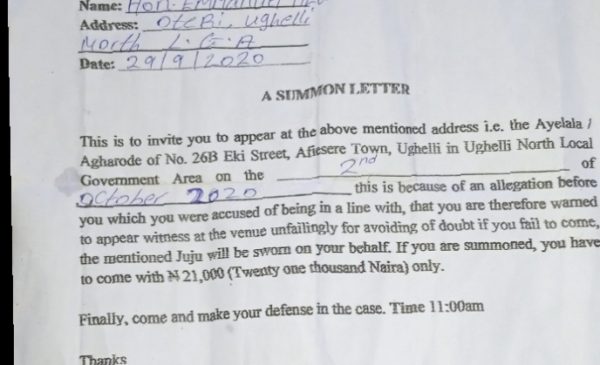 Name: Hon. Emmanuel
Address: Oteri, Ughelli
North L.G.A
Date: 29/9/2020
A SUMMON LETTER
This is to invite you to appear at the above mentioned address i.e. the Ayelala /
Agharode of No. 26B Eki Street, Afiesere Town, Ughelli in Ughelli North Local
Government Area on the 2nd of
October 2020 this is because of an allegation before
you which you were accused of being in a line with, that you are therefore warned
to appear witness at the venue unfailingly for avoiding of doubt if you fail to come,
the mentioned Juju will be sworn on your behalf. If you are summoned, you have
to come with ₦ 21,000 (Twenty one thousand Naira) only.
Finally, come and make your defense in the case. Time 11:00am
Thanks